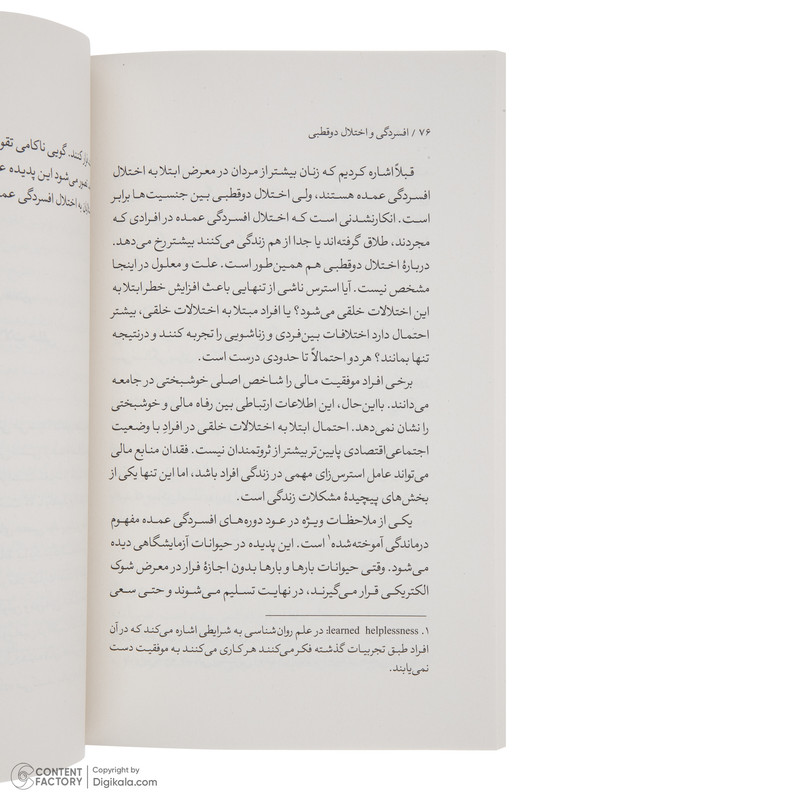 ۷۶ / افسردگی و اختلال دوقطبی
قبلاً اشاره کردیم که زنان بیشتر از مردان در معرض ابتلا به اختلال
افسردگی عمده هستند، ولی اختلال دوقطبی بین جنسیت‌ها برابر
است. انکارنشدنی است که اختلال افسردگی عمده در افرادی که
مجردند، طلاق گرفته‌اند یا جدا از هم زندگی می‌کنند بیشتر رخ می‌دهد.
دربارهٔ اختلال دوقطبی هم همین‌طور است. علت و معلول در اینجا
مشخص نیست. آیا استرس ناشی از تنهایی باعث افزایش خطر ابتلا به
این اختلالات خلقی می‌شود؟ یا افراد مبتلا به اختلالات خلقی، بیشتر
احتمال دارد اختلافات بین‌فردی و زناشویی را تجربه کنند و درنتیجه
تنها بمانند؟ هر دو احتمالاً تا حدودی درست است.
برخی افراد موفقیت مالی را شاخص اصلی خوشبختی در جامعه
می‌دانند. بااین‌حال، این اطلاعات ارتباطی بین رفاه مالی و خوشبختی
را نشان نمی‌دهد. احتمال ابتلا به اختلالات خلقی در افرادِ با وضعیت
اجتماعی‌اقتصادی پایین‌تر بیشتر از ثروتمندان نیست. فقدان منابع مالی
می‌تواند عامل استرس‌زای مهمی در زندگی افراد باشد، اما این تنها یکی از
بخش‌های پیچیدهٔ مشکلات زندگی است.
یکی از ملاحظات ویژه در عود دوره‌های افسردگی عمده مفهوم
درماندگی آموخته‌شده۱ است. این پدیده در حیوانات آزمایشگاهی دیده
می‌شود. وقتی حیوانات بارها و بارها بدون اجازهٔ فرار در معرض شوک
الکتریکی قرار می‌گیرند، در نهایت تسلیم می‌شوند و حتی سعی
۱. learned helplessness: در علم روان‌شناسی به شرایطی اشاره می‌کند که در آن
افراد طبق تجربیات گذشته فکر می‌کنند هر کاری می‌کنند به موفقیت دست
نمی‌یابند.
کنند. گویی ناکامی
می‌شود این پدیده
به اختلال افسردگی
CONTENT FACTORY
Copyright by
Digikala.com